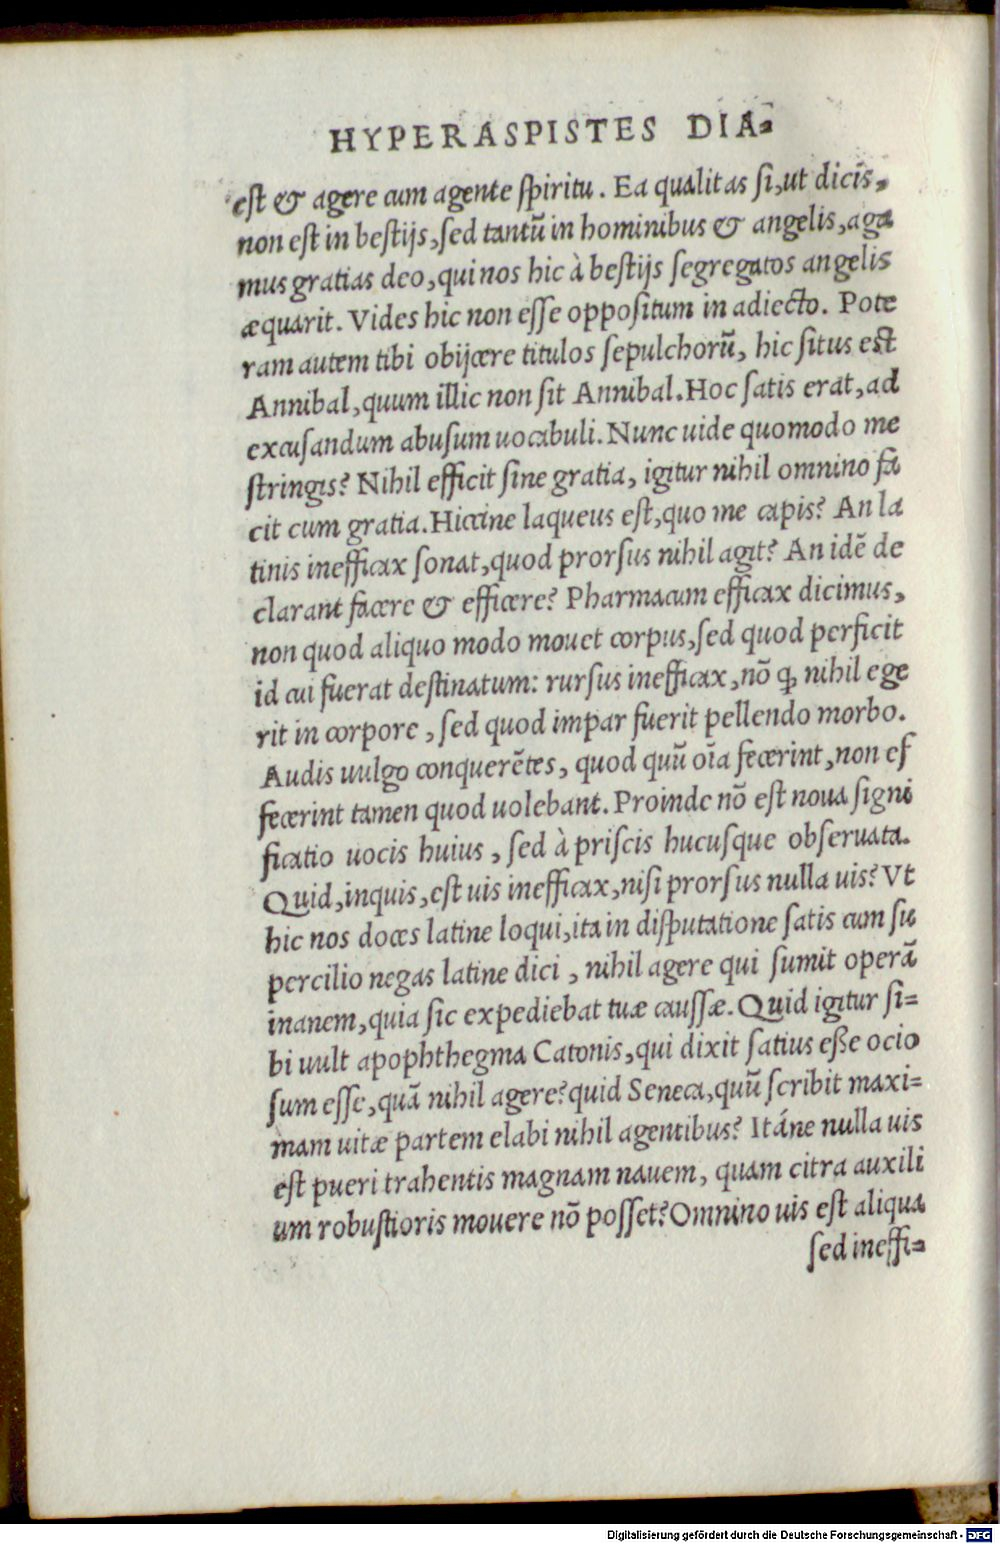 HYPERASPISTES DIA-
est & agere cum agente spiritu. Ea qualitas si, ut dicis,
non est in bestijs, sed tantũ in hominibus & angelis, aga
mus gratias deo, qui nos hic à bestijs segregatos angelis
æquarit. Vides hic non esse oppositum in adiecto. Pote
ram autem tibi obijcere titulos sepulchorũ, hic situs est
Annibal, quum illic non sit Annibal. Hoc satis erat, ad
excusandum abusum uocabuli. Nunc uide quomodo me
stringis? Nihil efficit sine gratia, igitur nihil omnino fa
cit cum gratia. Hiccine laqueus est, quo me capis? An la
tinis inefficax sonat, quod prorsus nihil agit? An idẽ de
clarant facere & efficere? Pharmacum efficax dicimus,
non quod aliquo modo mouet corpus, sed quod perficit
id cui fuerat destinatum: rursus inefficax, nõ ꝙ nihil ege
rit in corpore, sed quod impar fuerit pellendo morbo.
Audis uulgo conquerẽtes, quod quũ oĩa fecerint, non ef
fecerint tamen quod uolebant. Proinde nõ est noua signi
ficatio uocis huius, sed à priscis hucusque obseruata.
Quid, inquis, est uis inefficax, nisi prorsus nulla uis? Vt
hic nos doces latine loqui, ita in disputatione satis cum su
percilio negas latine dici, nihil agere qui sumit operã
inanem, quia sic expediebat tuæ caussæ. Quid igitur si-
bi uult apophthegma Catonis, qui dixit satius eße ocio
sum esse, quã nihil agere? quid Seneca, quũ scribit maxi-
mam uitæ partem elabi nihil agentibus? Itáne nulla uis
est pueri trahentis magnam nauem, quam citra auxili
um robustioris mouere nõ posset? Omnino uis est aliqua
sed ineffi-
Digitalisierung gefördert durch die Deutsche Forschungsgemeinschaft - DFG